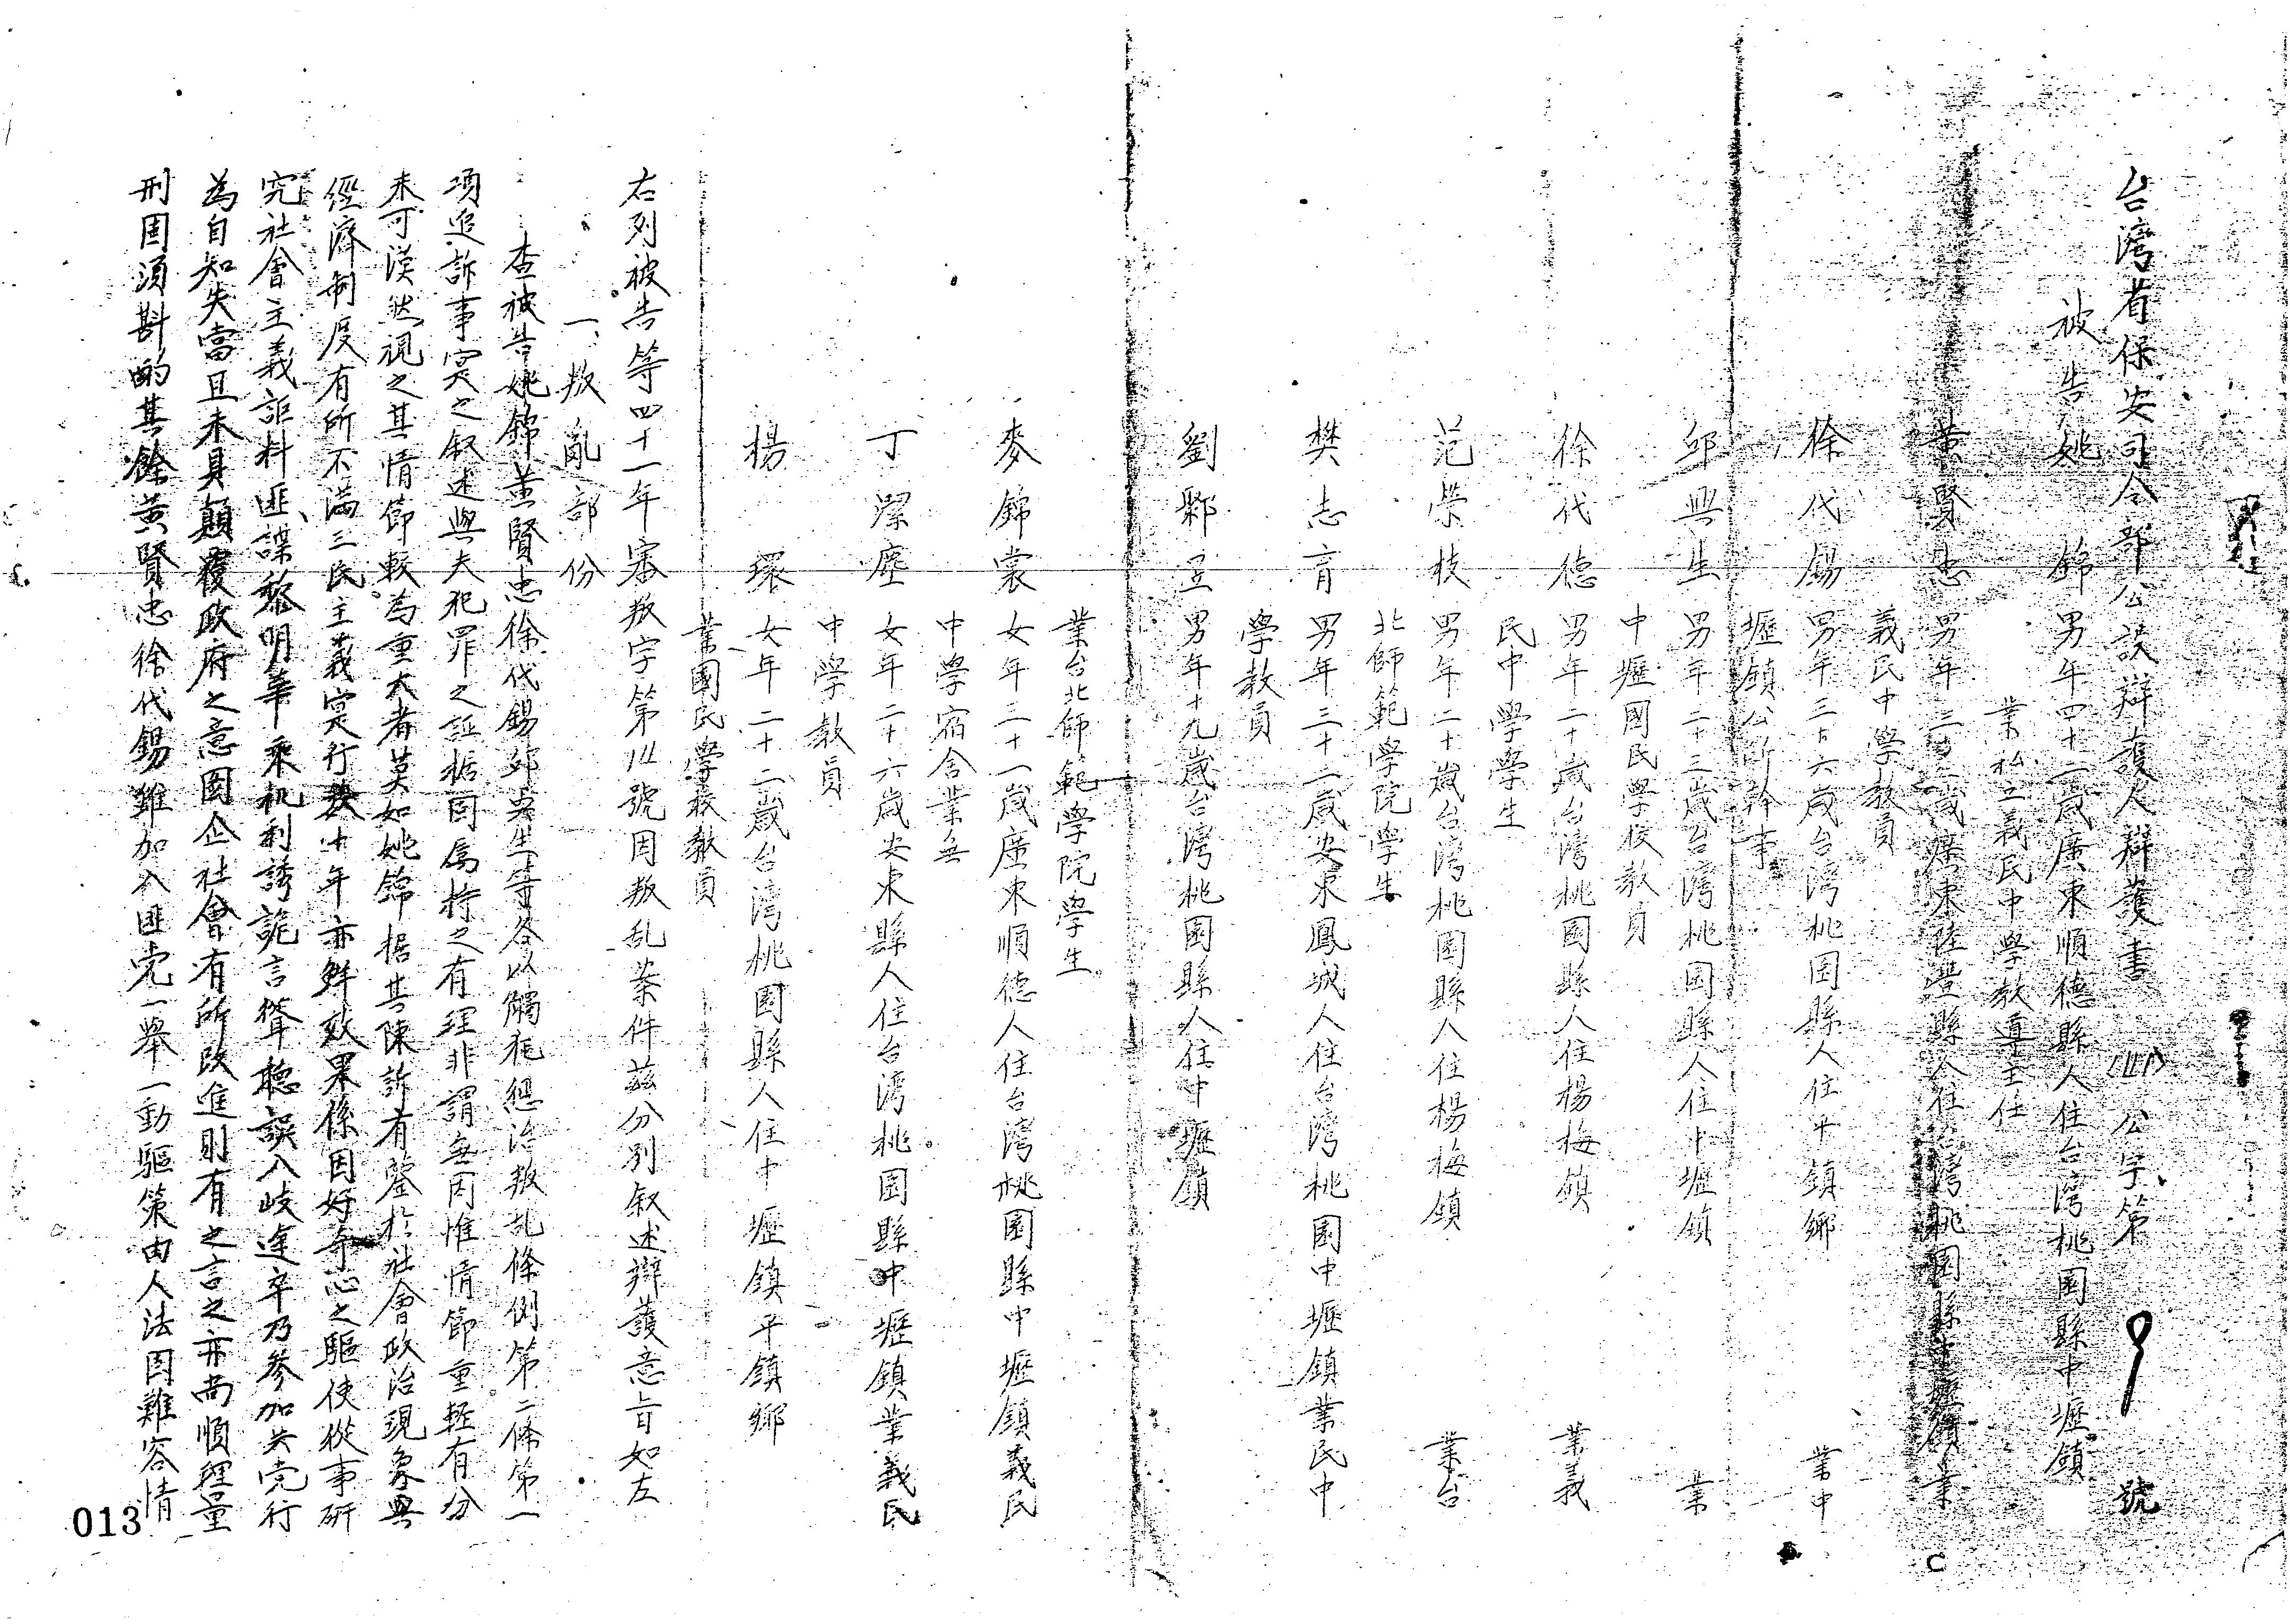 台灣省保安司令部公設辯護人辯護書 (41) 公字第 9 號
被告 姚錦 男年四十二歲廣東順德縣人住台灣桃園縣中壢鎮
業私立義民中學教導主任
黃賢忠 男年三十 歲廣東陸豐縣人住台灣桃園縣中壢鎮業
義民中學教員
徐代錫 男年三十六歲台灣桃園縣人住平鎮鄉 業中
壢鎮公所幹事
邱興生 男年二十三歲台灣桃園縣人住中壢鎮 業
中壢國民學校教員
徐代德 男年二十歲台灣桃園縣人住楊梅鎮 業義
民中學學生
范榮枝 男年二十歲台灣桃園縣人住楊梅鎮 業台
北師範學院學生
樊志育 男年三十二歲安東鳳城人住台灣桃園中壢鎮業民中
學教員
劉鄹昱 男年十九歲台灣桃園縣人住中壢鎮
業台北師範學院學生。
麥錦裳 女年三十一歲廣東順德人住台灣桃園縣中壢鎮義民
中學宿舍業無
丁潔塵 女年二十六歲安東縣人住台灣桃園縣中壢鎮業義民
中學教員
楊環 女年二十二歲台灣桃園縣人住中壢鎮平鎮鄉
業國民學校教員
右列被告等四十一年審叛字第 號因叛乱案件茲分別叙述辯護意旨如左
一、叛亂部份
查被告姚錦黃賢忠徐代錫邱興生等各以觸犯懲治叛乱條例第二條第一
項追訴事实之叙述與夫犯罪之証據固属持之有理非謂無因惟情節重輕有分
未可漠然視之其情節較為重大者莫如姚錦據其陳訴有鑒於社會政治現象與
經濟制度有所不滿三民主義实行数十年亦鮮效果係因好奇心之驅使從事研
究社會主義詎料匪諜黎明華乘机利誘詭言聳聽誤入歧途卒乃參加共党行
為自知失當且未具顛覆政府之意圖企社會有所改進則有之言之亦尚順理量
刑固須斟酌其餘黃賢忠徐代錫雖加入匪党一舉一動驅策由人法固難容情
013